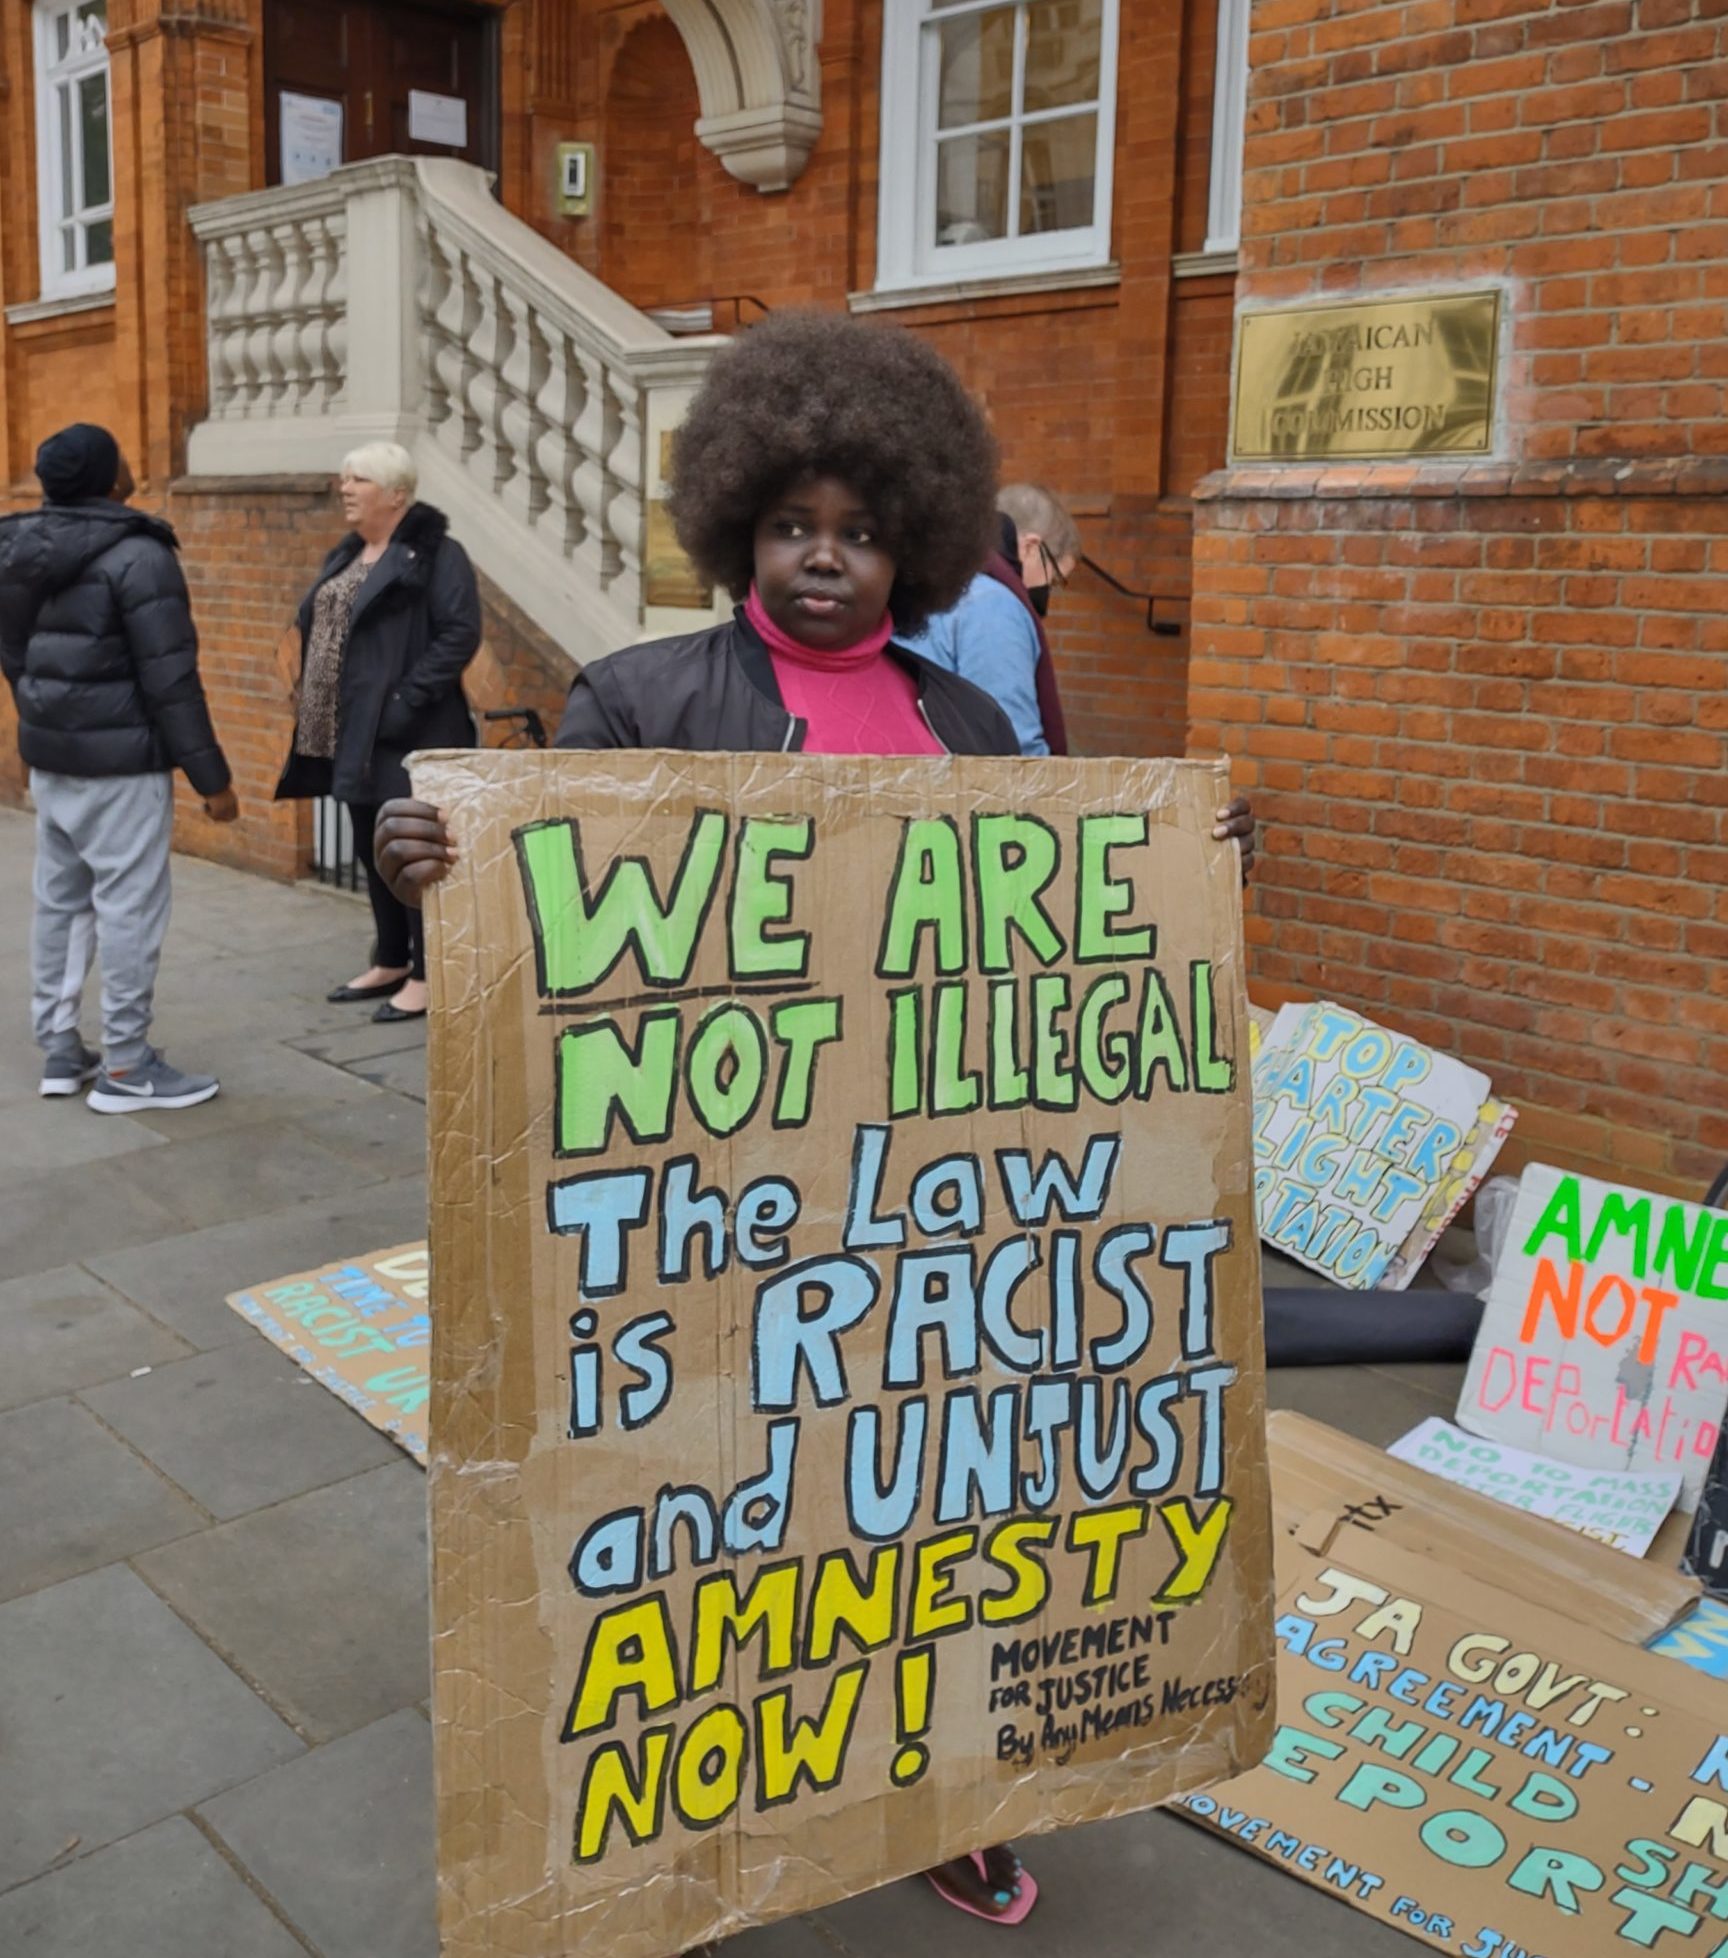 JAMAICAN
HIGH
COMMISSION
WE ARE
NOT ILLEGAL
The Law
is RACIST
and UNJUST
AMNESTY
NOW!
MOVEMENT
FOR JUSTICE
By Any Means Necessary
STOP
CHARTER
FLIGHT
TIME TO
RACIST UK
AMNE
NOT RA
DEPortAtio
NO TO MASS
DEPORTATION
itx
JA GOVT:
AGREEMENT -
CHILD SH
EPORT
MOVEMENT FOR JU